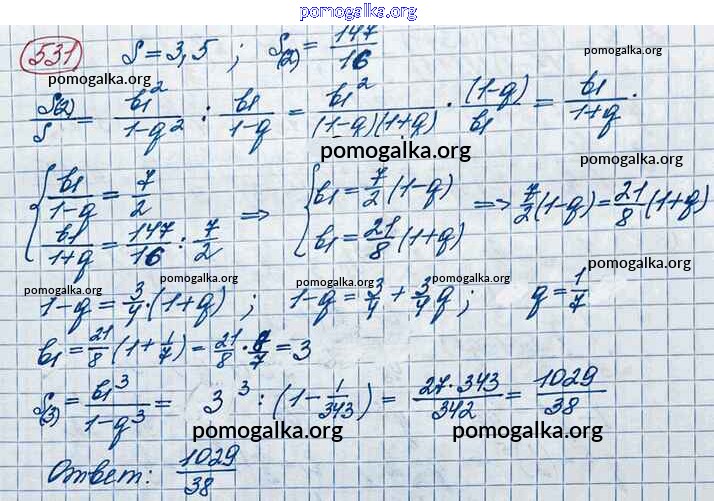 pomogalka.org
531 S = 3,5 ; S(2) = 147/16
pomogalka.org pomogalka.org
S(2)/S = b1²/(1-q²) : b1/(1-q) = b1²/((1-q)(1+q)) · (1-q)/b1 = b1/(1+q).
pomogalka.org pomogalka.org
{ b1/(1-q) = 7/2 ⇒ { b1 = 7/2 (1-q) ⇒ 7/2 (1-q) = 21/8 (1+q)
{ b1/(1+q) = 147/16 : 7/2 { b1 = 21/8 (1+q)
pomogalka.org pomogalka.org pomogalka.org pomogalka.org
1-q = 3/4 · (1+q) ; 1-q = 3/4 + 3/4 q ; q = 1/7
b1 = 21/8 (1 + 1/7) = 21/8 · 8/7 = 3
S(3) = b1³/(1-q³) = 3³ : (1 - 1/343) = 27·343/342 = 1029/38
pomogalka.org pomogalka.org
Ответ: 1029/38